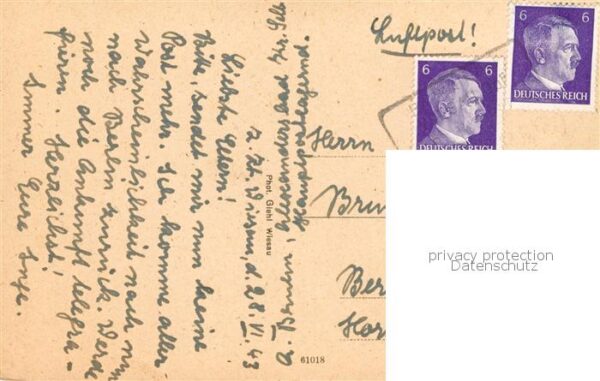 Luftpost!
6 6
DEUTSCHES REICH
6 6
DEUTSCHES REICH
Herrn
Brun
Ber
Hor
privacy protection
Datenschutz
Phot. Giehl Wissau
61018
d. 28. VI. 43
Liebste Eltern!
Bitte, sendet mir nun keine
Post mehr. Ich komme aller
Wahrscheinlichkeit nach nun
nach Berlin zurück. Werde
noch die Ankunft telegra-
fieren. Herzlichst,
Immer Eure